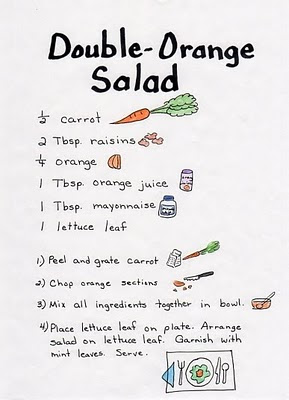 Double-Orange
Salad
½ carrot
2 Tbsp. raisins
¼ orange
1 Tbsp. orange juice
1 Tbsp. mayonnaise
1 lettuce leaf
1) Peel and grate carrot
2) Chop orange sections
3) Mix all ingredients together in bowl.
4) Place lettuce leaf on plate. Arrange
salad on lettuce leaf. Garnish with
mint leaves. Serve.